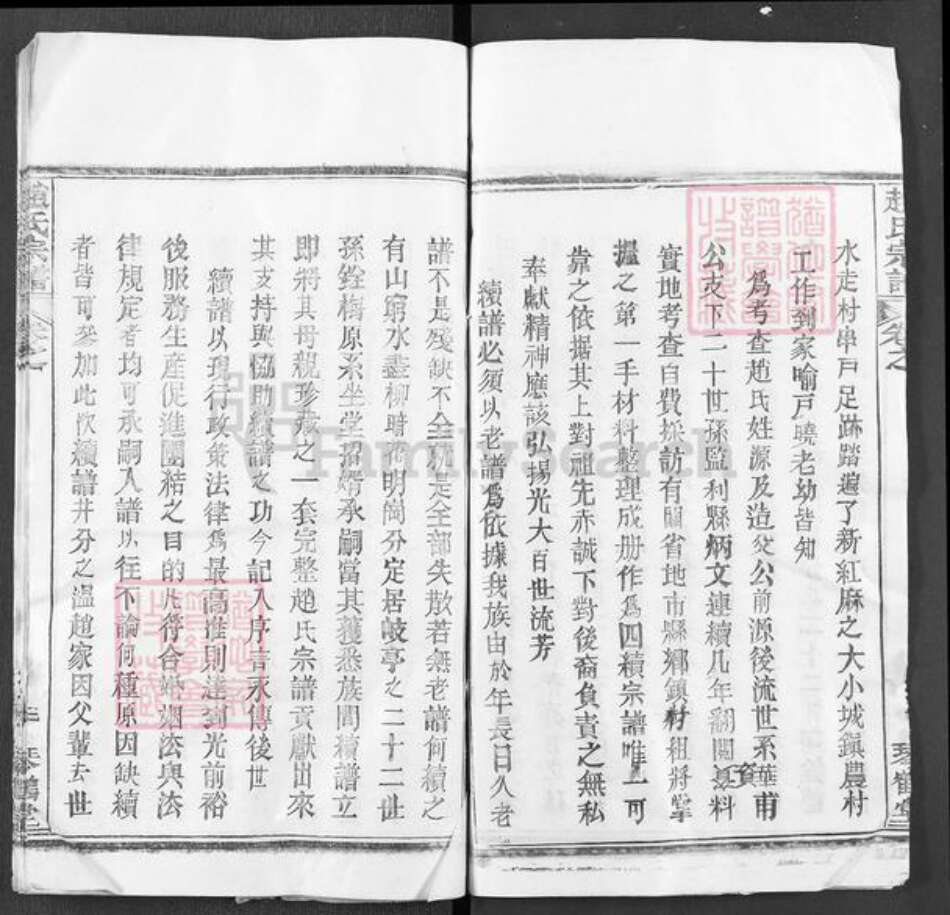 趙氏宗譜
卷之
水走村串戸足跡踏遍了新紅麻之大小城鎮農村
工作到家喻戸曉老幼皆知
爲考查趙氏姓源及造父公前源後流世系華甫
公支下二十世孫監利縣炳文連續几年翻閱資料
實地考查自費採訪有關省地市縣鄉鎮村組將掌
握之第一手材料整理成册作爲四續宗譜唯一可
靠之依据其上對祖先赤誠下對後裔負責之無私
奉獻精神應該弘揚光大百世流芳
續譜必須以老譜爲依據我族由於年長日久老
琴鶴堂
譜不是殘缺不全就是全部失散若無老譜何續之
有山窮水盡柳暗花明岡分定居岐亭之二十二世
孫銓梅原系坐堂招婿承嗣當其獲悉族間續譜立
即將其母親珍藏之一套完整趙氏宗譜貢獻出來
其支持與協助續譜之功今記入序言永傳後世
續譜以現行政策法律爲最高准則達到光前裕
後服務生産促進團結之目的凡符合婚姻法與法
律規定者均可承嗣入譜以往不論何種原因缺續
者皆可參加此次續譜井分之溫趙家因父輩去世
趙氏宗譜
卷之
琴鶴堂
FamilySearch